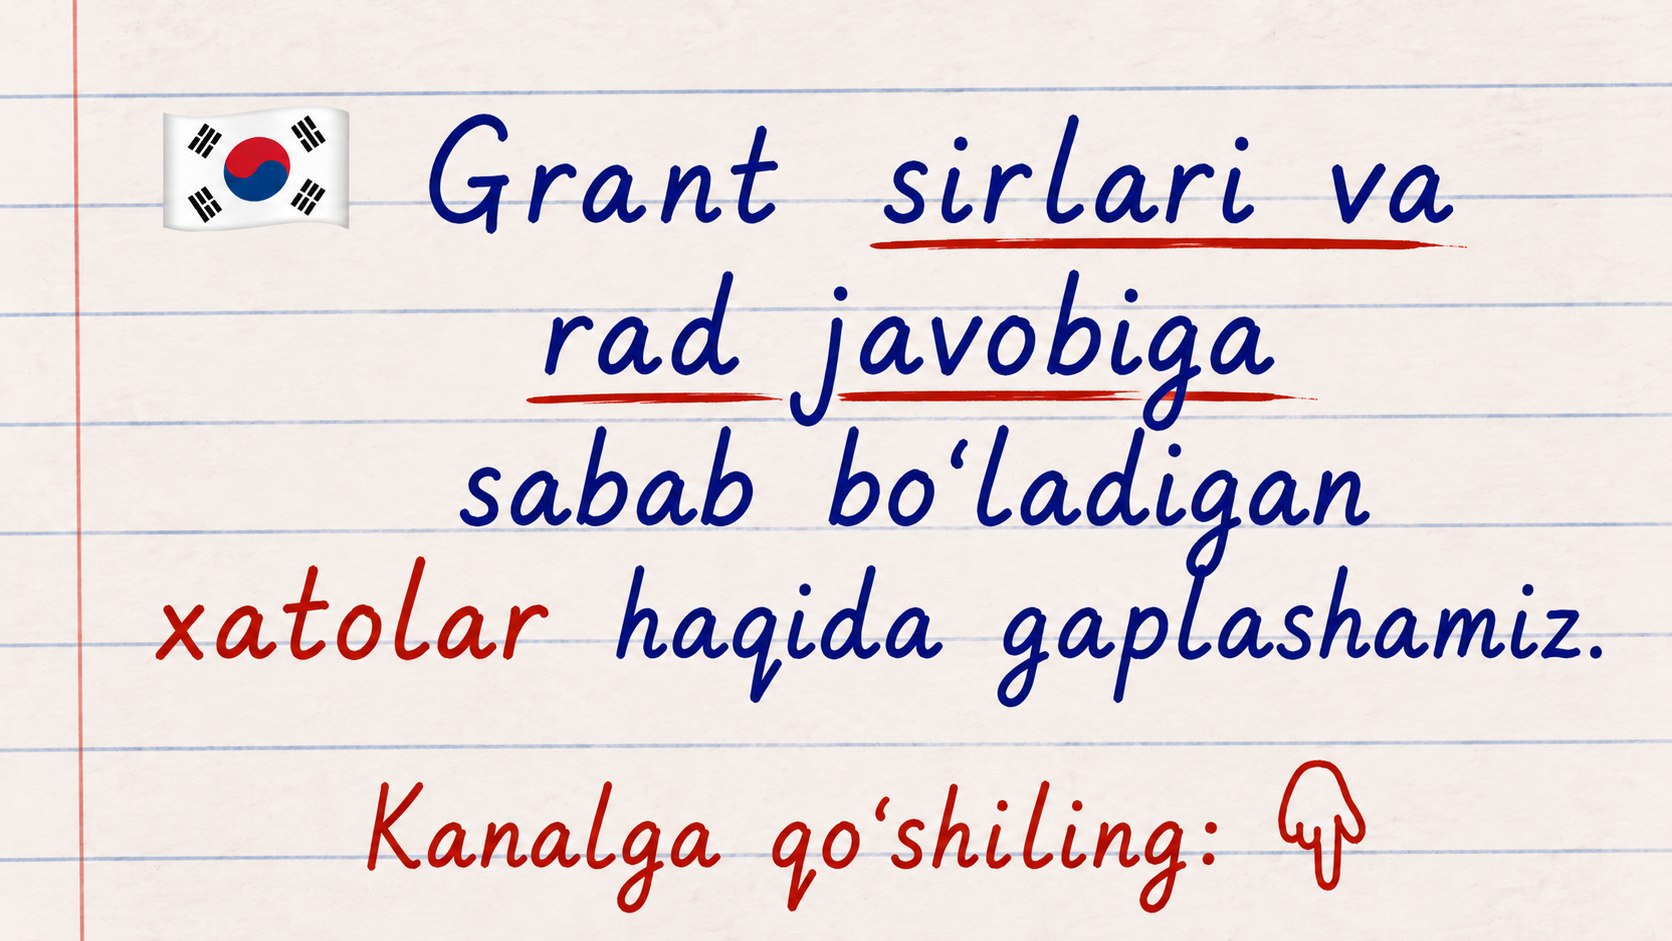 🇰🇷 Grant sirlari va
rad javobiga
sabab bo‘ladigan
xatolar haqida gaplashamiz.
Kanalga qo‘shiling: 👇